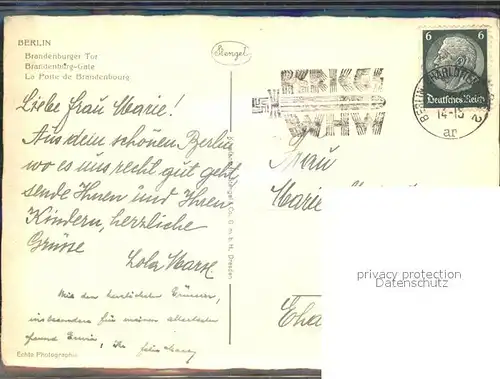 BERLIN
Brandenburger Tor
Brandenburg-Gate
La Porte de Brandenbourg
Stengel
6 6
Deutsches Reich
KRIEGS
WHW
BERLIN-CHARLOTTENBURG 2
14-15
ar
Liebe Frau Marie!
Aus dem schönen Berlin
wo es uns recht gut geht
sende Ihnen und Ihren
Kindern, herzliche
Grüsse
Lola
Mit den herzlichsten Grüssen,
insbesondere für meinen
freund Erwin, Ihr Felix
Frau
Marie
Echte Photographie
Stengel & Co., G. m. b. H., Dresden
privacy protection
Datenschutz